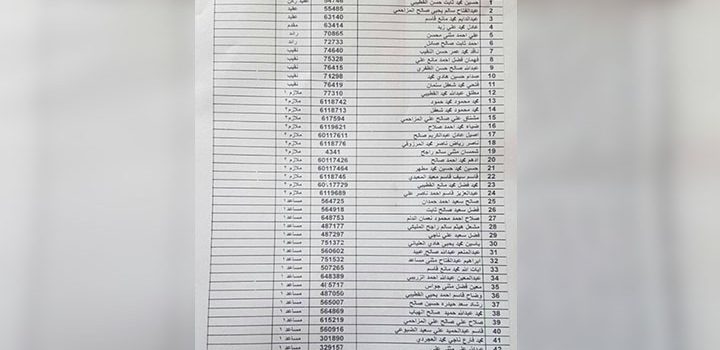 1 حسين محمد ثابت حسن القطيبي 54746 عقيد ركن
2 عبدالفتاح سالم يحيى صالح المزاحمي 55485 عقيد
3 عبدالدايم محمد مانع قاسم 63140 عقيد
4 عادل محمد علي زيد 63414 مقدم
5 علي احمد مثنى محسن 70865 رائد
6 احمد ثابت صالح صادل 72733 رائد
7 نافذ محمد عمر حسن النقيب 74640 نقيب
8 فهمان فضل احمد مانع علي 75328 نقيب
9 عبدالله صالح حسن الظفري 76415 نقيب
10 صدام حسين هادي محمد 71298 نقيب
11 فتحي محمد شعفل سلمان 76419 نقيب
12 مطلق عبدالله محمد القطيبي 77310 ملازم ١
13 محمد محمود محمد حمود 6118742 ملازم٢
14 محمد محمود محمد شعفل 6118713 ملازم٢
15 مشتاق علي صالح علي المزاحمي 617594 ملازم٢
16 ضياء محمد احمد صلاح 6119621 ملازم٢
17 اصيل عادل عبدالكريم صالح 60117611 ملازم٢
18 ناصر رياض ناصر محمد المرزوقي 6118776 ملازم٢
19 شمسان مثنى سالم راجح 4341 ملازم٢
20 ادهم محمد احمد صالح 60117426 ملازم ٢
21 حسين محمد حسين محمد مطهر 60117464 ملازم ٢
22 قاسم سيف قاسم معبد المعبدي 6118745 ملازم ٢
23 محمد فضل محمد مانع القطيبي 17729 ملازم ٢
24 عبدالعزيز قاسم احمد ناصر علي 6119689 ملازم ٢
25 صالح سعيد احمد حمدان 564725 مساعد ١
26 فضل سعيد صالح ثابت 564918 مساعد ١
27 صلاح احمد محمود نعمان الدلم 648753 مساعد ١
28 مشعل هيثم سالم راجح المليتي 487177 مساعد ١
29 فضل سعيد علي ناجي 487297 مساعد ١
30 ياسين محمد يحيى هادي العلياني 751372 مساعد ١
31 عبدالمنعم عبدالله صالح عبيد 560602 مساعد ١
32 ابراهيم عبدالفتاح مثنى مساعد 751532 مساعد ١
33 آيات الله محمد مانع قاسم 507265 مساعد ١
34 عبدالمعين عبدالله احمد الزريبي 648389 مساعد ١
35 معين فضل مثنى جواس 5717 مساعد ١
36 وضاح قاسم احمد يحيى القطيبي 487050 مساعد ١
37 رشاد سعد حيدره حسين صالح 565007 مساعد ١
38 محمد عبدالله حميد صالح الهياب 564869 مساعد ١
39 صلاح علي صالح علي المزاحمي 615219 مساعد ١
40 قاسم عبدالحميد علي سعيد الضبوعي 560916 مساعد ١
41 محمد فارع ناجي محمد العجردي 301890 مساعد ١
42 329157 مساعد ١